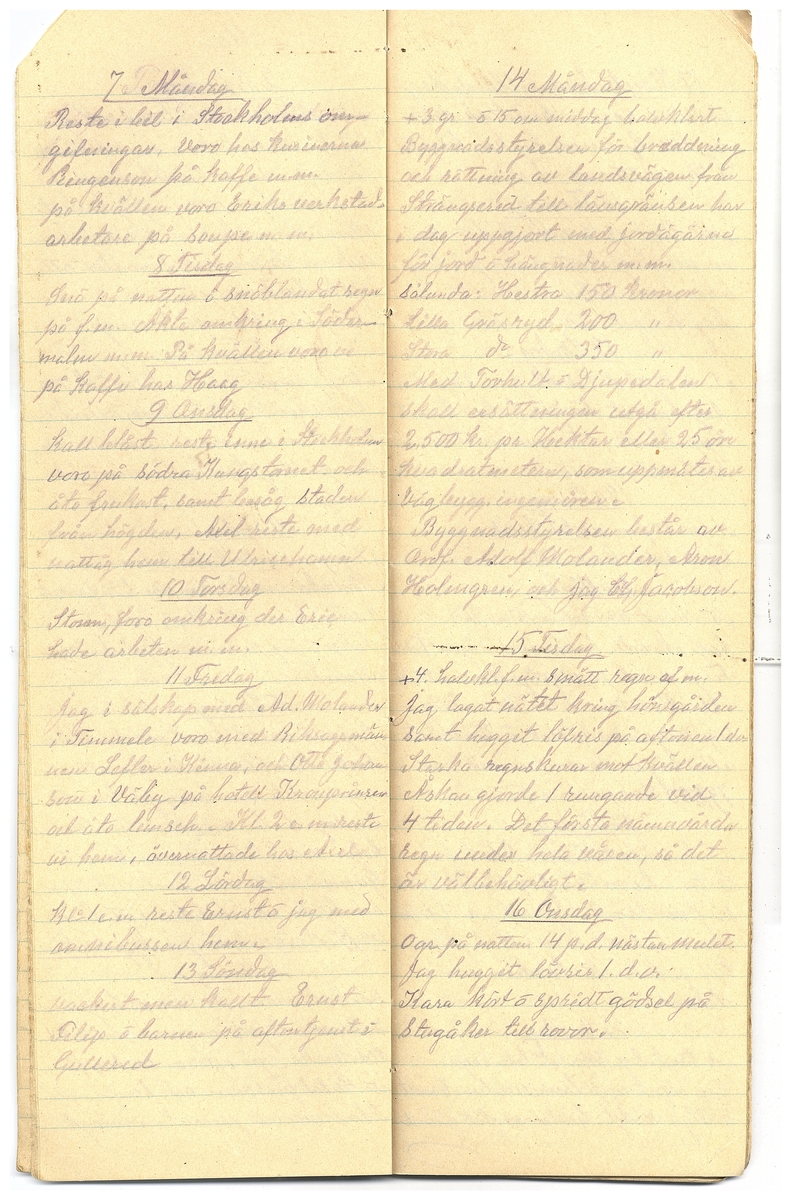 7 Måndag
Reste i bil i Stockholms om-
gifningar. Voro hos kusinerna
Ringenson på kaffe m.m.
på kvällen voro Eriks verkstads
arbetare på soupe m.m.
8 Tisdag
Snö på natten o snöblandat regn
på f.m. Åkte omkring i Söder-
malm m.m. På kvällen voro vi
på kaffe hos Haag
9 Onsdag
Kall blåst, reste inne i Stockholm
voro på södra Kungstornet och
åto frukost, samt besåg staden
från höjden, Axel reste med
nattåg hem till Ulricehamn
10 Torsdag
Storm, foro omkring der Eric
hade arbeten m.m.
11 Fredag
Jag i sälskap med Ad. Molander
i Timmele voro med Riksdagsmän
nen Lefler i Kinna, och Otto Johans
son i Väby på hotell Kronprinsen
och åto lunsch. Kl 2 e.m reste
vi hem, övernattade hos Axel
12 Lördag
Kl 1 e.m reste Ernst o jag med
omnibussen hem.
13 Söndag
vackert men kallt Ernst
Filip o barnen på aftontjenst i
Gullered
14 Måndag
+3 gr. o 15 om middag halvklart
Byggnadsstyrelsen för breddning
och rättning av landsvägen från
Strängsered till länsgränsen har
i dag uppgjort med jordägarna
för jord o hängnader m.m.
sålunda: Hestra 150 kronor
Lilla Gräsryd 200 "
Stora do 350 "
Med Torhult o Djupedalen
skall ersättningen utgå efter
2,500 kr. pr Hecktar eller 25 öre
kvadratmetern, som uppmätes av
Vägbygg. ingeniören.
Byggnadsstyrelsen består av
Ordf. Adolf Molander, Aron
Holmgren, och jag Jacobson.
15 Tisdag
+4. halvkl. f.m. smått regn ef.m.
Jag lagat nätet kring hönsgården
samt huggit löfris på aftonen 1 dv
Starka regnskurar mot kvällen
Åskan gjorde 1 rungande vid
4 tiden. Det första nämnvärda
regn under hela våren, så det
är välbehövligt.
16 Onsdag
0 gr på natten 14 p.d. nästan mulet.
Jag huggit lövris 1. d.v.
Kara kört o spridt gödsel på
Stugåker till rovor.